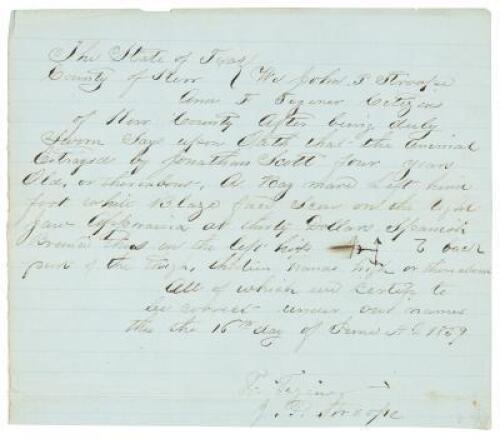 The State of Texas
County of Kerr { We John P Stroope
Ann F Tegener Citizens
of Kerr County After being duly
Sworn Says upon Oath that the animal
Estrayed by Jonathan Scott four years
Old, or thereabout, A Bay mare Left hind
foot white Blaze face Scar on the
jaw Appraised at thirty Dollars Spanish
Brand this on the left hip & back
part of the thigh, hands high or thereabout
All of which we certify to
be correct under our names
this the 16th day of June AD 1859
F. Tegener
J. P. Stroope